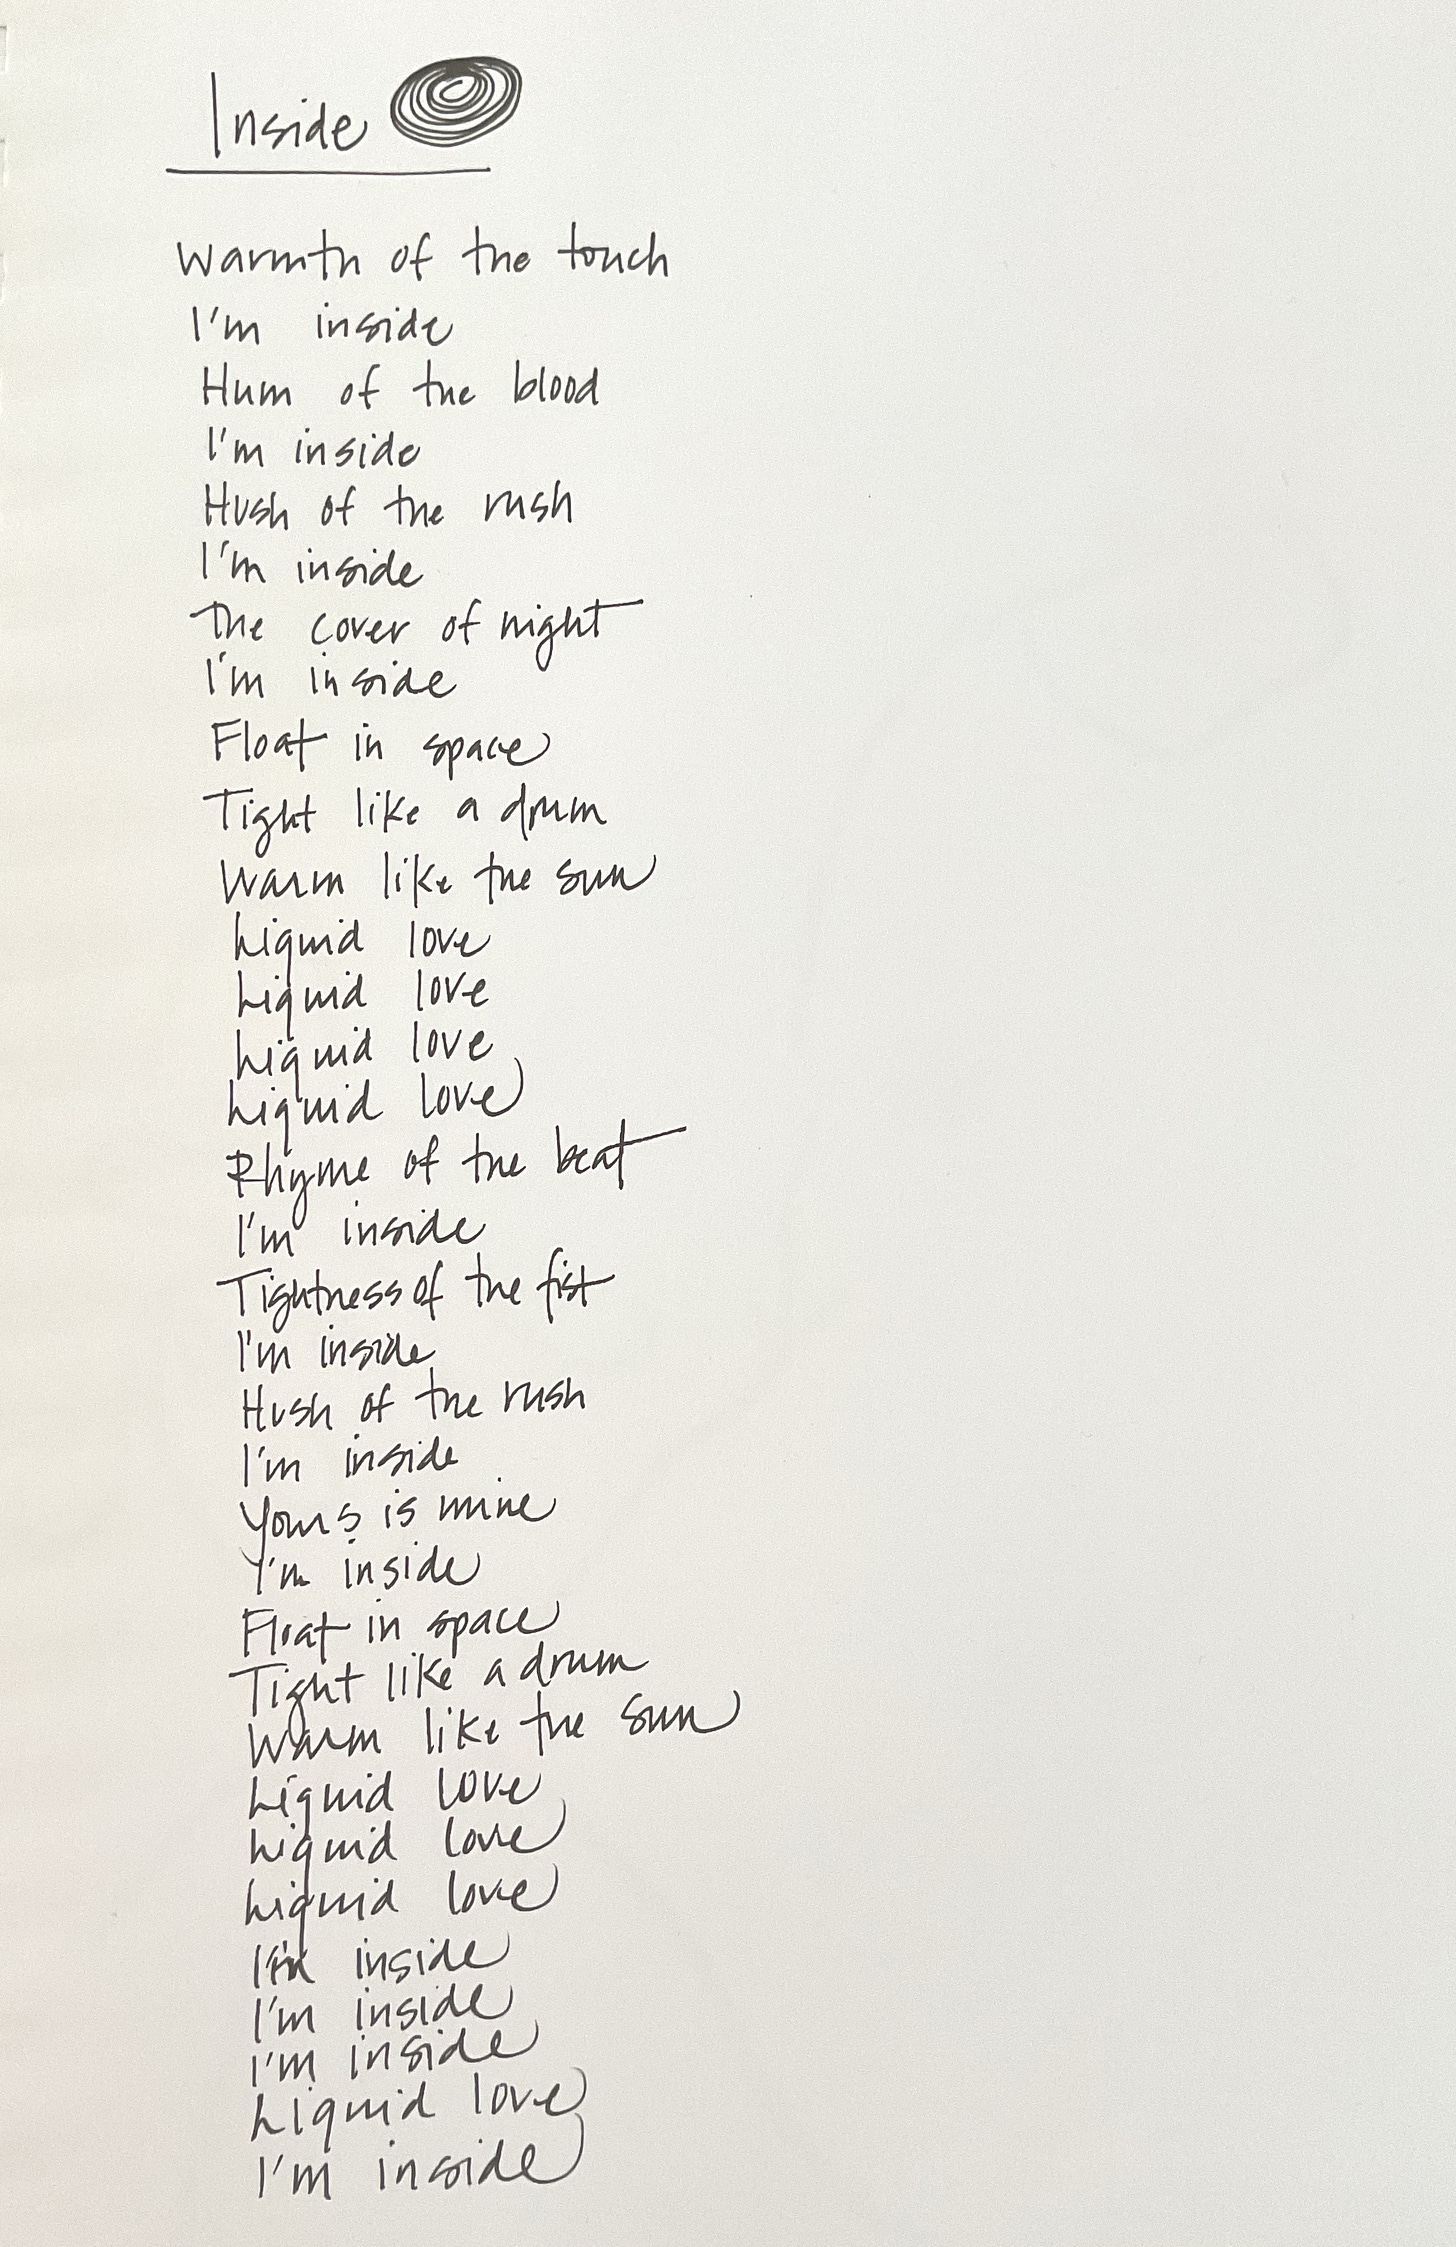 Inside
Warmth of the touch
I'm inside
Hum of the blood
I'm inside
Hush of the rush
I'm inside
The cover of night
I'm inside
Float in space
Tight like a drum
Warm like the sun
Liquid love
Liquid love
Liquid love
Liquid love
Rhyme of the beat
I'm inside
Tightness of the fist
I'm inside
Hush of the rush
I'm inside
Yours is mine
I'm inside
Float in space
Tight like a drum
Warm like the sun
Liquid love
Liquid love
Liquid love
I'm inside
I'm inside
I'm inside
Liquid love
I'm inside